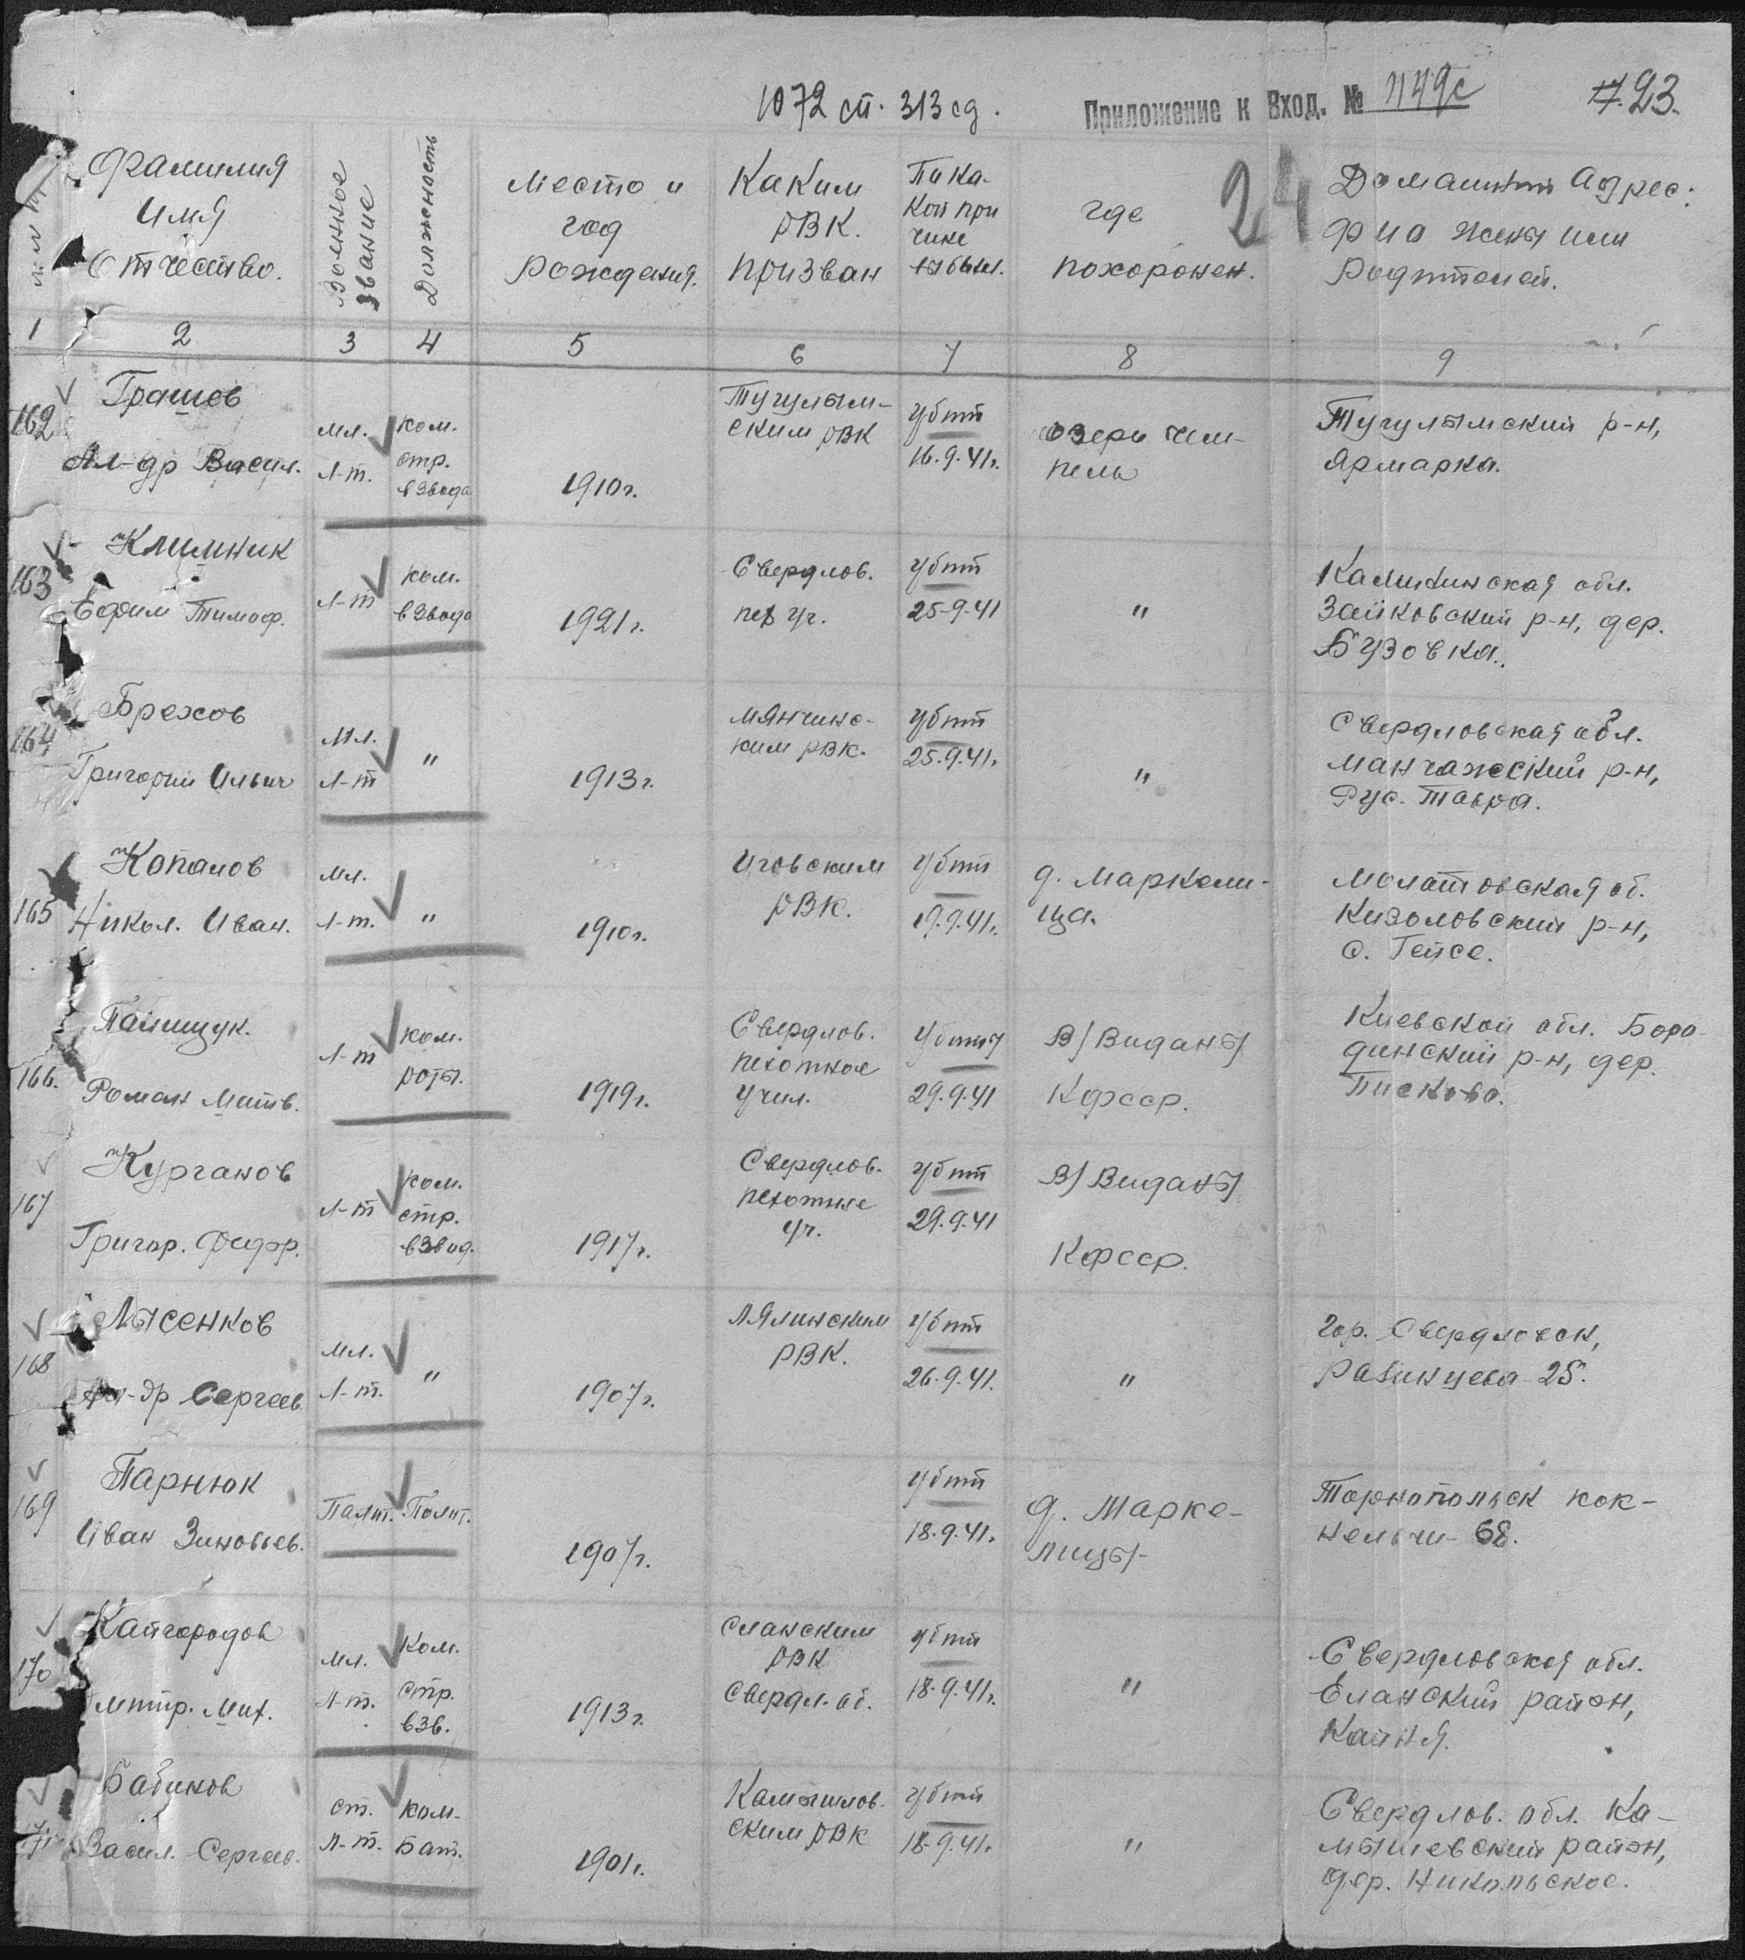 1072 сп. 313 сд.
Приложение к Вход. № 1149с
723.
24
№ № пп
Фамилия
Имя
Отчество.
Военное
звание
Должность
Место и
год
рождения.
Каким
РВК.
призван
По ка-
кой при
чине
выбыл.
где
похоронен.
Домашний адрес:
фио жены или
родителей.
1 2 3 4 5 6 7 8 9
162
Грашев
Ал-др Васил.
Мл.
Л-т.
ком.
стр.
взвода
1910г.
Тугулым-
ским РВК
убит
16.9.41г.
озеро Чим-
пель
Тугулымский р-н,
Ярмарка.
163
Климник
Ефим Тимоф.
Л-т
ком.
взвода
1921г.
Свердлов.
пех уч.
убит
25-9-41
"
Калининская обл.
Зайковский р-н, дер.
Бузовка.
164
Брехов
Григорий Ильич
Мл.
Л-т
"
1913г.
Мянчинс-
ким РВК.
убит
25.9.41г.
"
Свердловская обл.
Манчажский р-н,
Рус. Тавра.
165
Копалов
Никол. Иван.
Мл.
Л-т.
"
1910г.
Иговским
РВК.
убит
19.9.41г.
д. Маркели-
ца.
Молотовская об.
Кизоловский р-н,
с. Гейсе.
166.
Палищук.
Роман Матв.
Л-т
ком.
роты.
1919г.
Свердлов.
пехотное
учил.
убит
29.9.41
В/Виданы
Кфсср.
Киевской обл. Боро-
динский р-н, дер.
Писково.
167
Курганов
Григор. Федор.
Л-т
ком.
стр.
взвод.
1917г.
Свердлов.
пехотное
уч.
убит
29.9.41
В/Виданы
Кфсср.
168
Лысенков
Ал-др Сергеев
Мл.
Л-т.
"
1907г.
Лялинским
РВК.
убит
26.9.41.
"
гор. Свердловск,
Рабинцева 25.
169
Парнюк
Иван Зиновьев.
Полит. Полит.
1907г.
убит
18.9.41г.
д. Марке-
лицы-
Тарнопольск кок-
нельчи- 68.
170
Кайгородов
Дмитр. Мих.
Мл.
Л-т.
Ком.
стр.
взв.
1913г.
Еланским
РВК
Свердл. об.
убит
18.9.41г.
"
Свердловской обл.
Еланский район,
Кайня.
171
Бабинов
Васил. Сергеев.
ст.
Л-т.
ком.
Бат.
1901г.
Камышлов.
ским РВК
убит
18.9.41г.
"
Свердлов. обл. Ка-
мышевский район,
дер. Никольское.